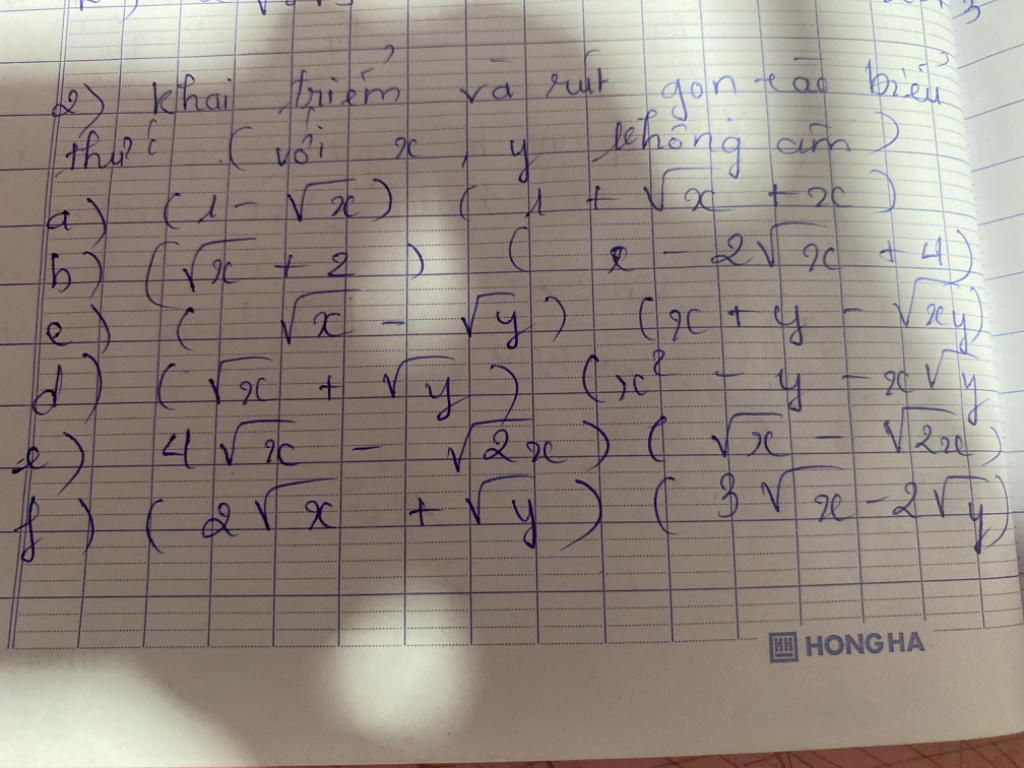 2) Khai triển và rút gọn các biểu
thức (với x, y không âm)
a) (1 - √x) (1 + √x + x)
b) (√x + 2) (x - 2√x + 4)
c) (√x - √y) (x + y - √xy)
d) (√x + √y) (x² - y - x√y
e) 4√x - √2x) (√x - √2x)
f) (2√x + √y) (3√x - 2√y)
HONG HA